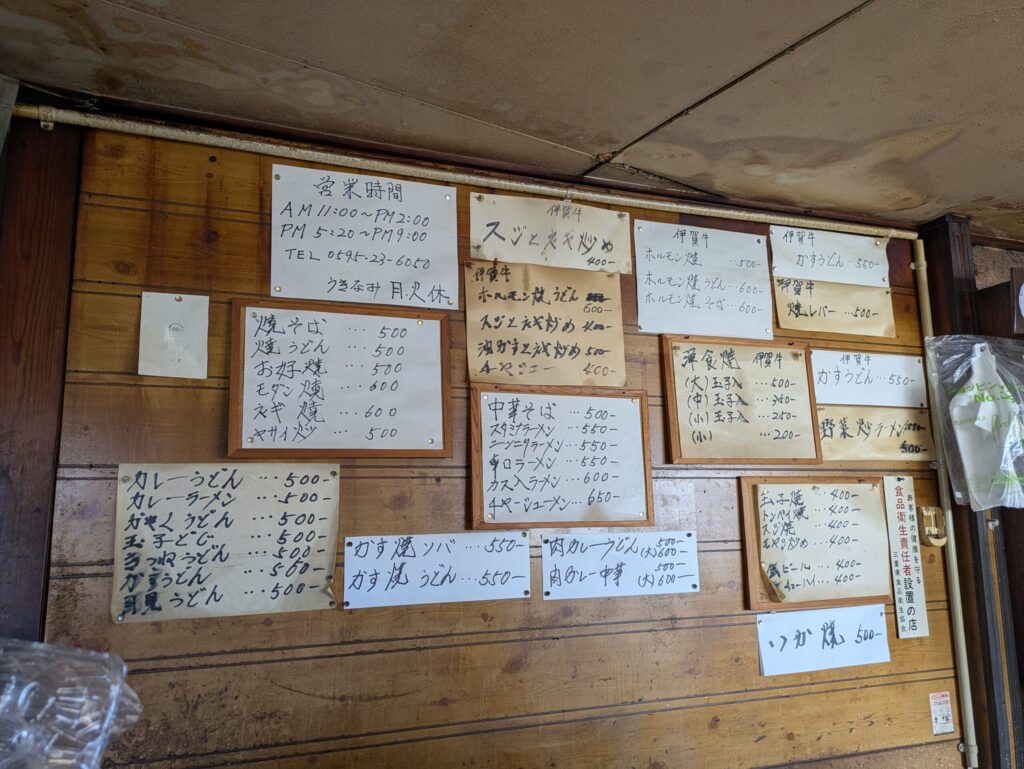 営業時間
AM 11:00〜PM 2:00
PM 5:20〜PM 9:00
TEL 0595-23-6050
うきなみ 月火休
伊賀牛
スジとネギ炒め
400-
伊賀牛
ホルモン焼うどん
600-
スジとネギ炒め 400-
油かすとネギ炒め 500-
チャジニー 400-
伊賀牛
ホルモン焼 …500-
ホルモン焼うどん…600-
ホルモン焼そば…600-
伊賀牛
かすうどん…550-
伊賀牛
焼レバー …500-
焼そば … 500
焼うどん … 500
お好焼 … 500
モダン焼 … 600
ネギ焼 … 600
ヤサイ炒 … 500
中華そば … 500-
スタミナラーメン …550-
ニンニクラーメン …550-
辛口ラーメン …550-
カス入ラーメン … 600-
チャーシューメン… 650-
洋食焼 伊賀牛
(大)玉子入 … 500-
(中)玉子入 … 350-
(小)玉子入 … 250-
(小) … 200-
伊賀牛
かすうどん…550-
野菜炒ラーメン
500-
カレーうどん … 500-
カレーラーメン … 500-
かやくうどん … 500-
玉子とじ … 500-
きつねうどん … 500-
かすうどん … 500-
月見うどん … 500-
かす焼ソバ … 550-
かす焼うどん … 550-
肉カレーうどん 500-
(大)600-
肉カレー中華 500-
(大)600-
玉子焼 … 400-
トンペイ焼 … 400-
スジ焼 … 400-
モヤシ炒め … 400-
ビール … 400-
…400-
お客様の健康を守る
食品衛生責任者設置の店
三重県食品衛生協会
いか焼 500-